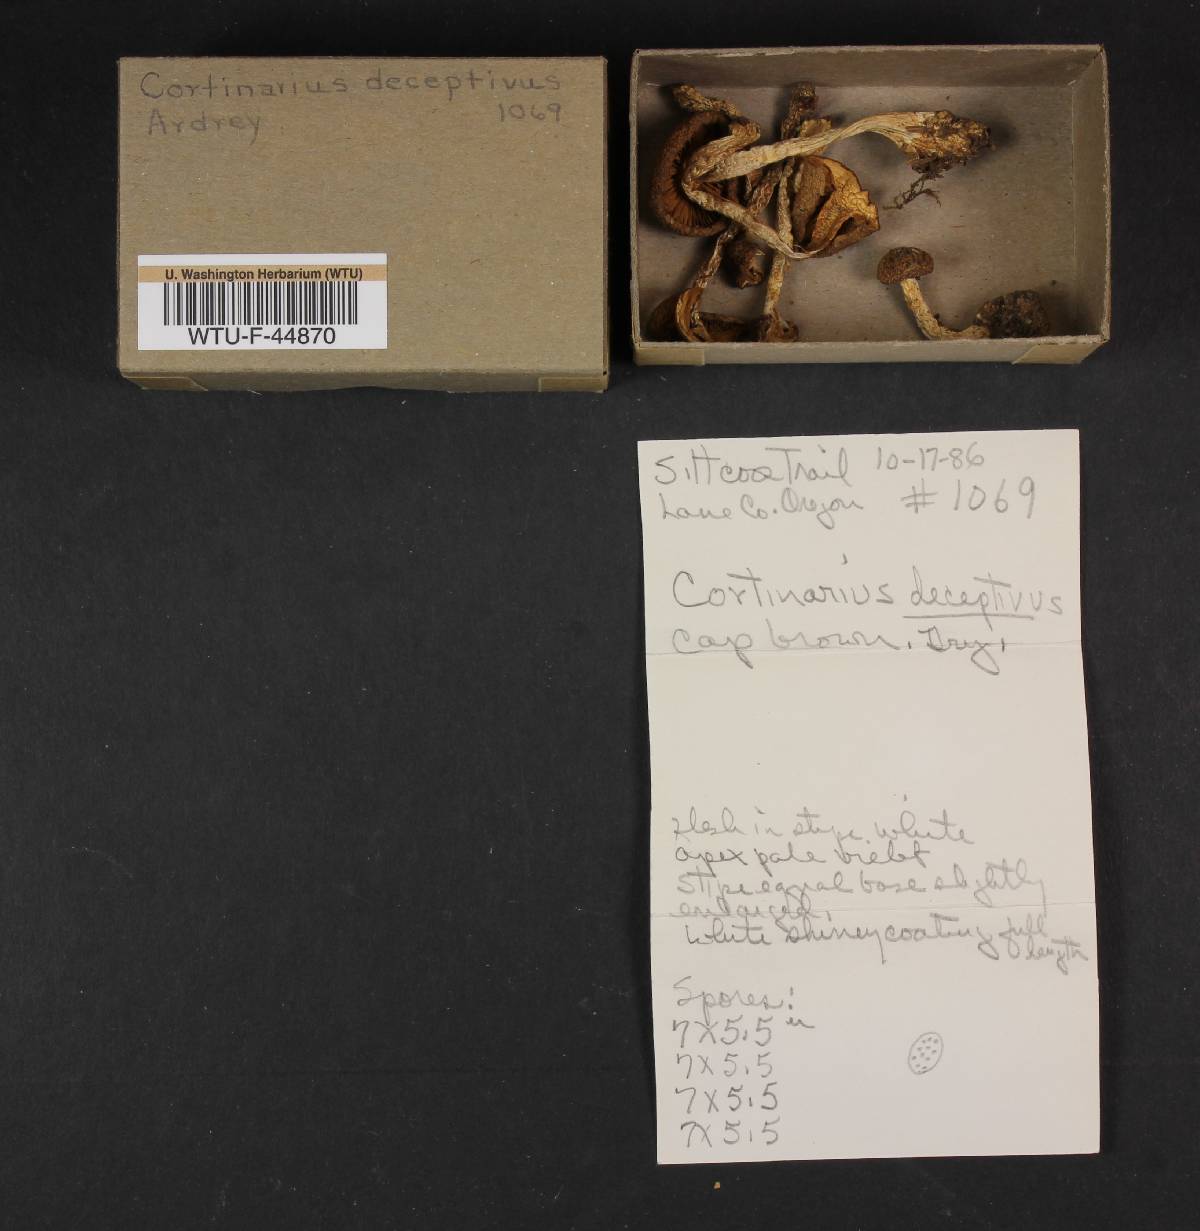 Cortinarius deceptivus
Ardrey 1069
U. Washington Herbarium (WTU)
WTU-F-44870
Siltcoos Trail 10-17-86
Lane Co. Oregon #1069
Cortinarius deceptivus
Cap brown. Dry.
Flesh in stipe white
apex pale violet
Stipe equal base slightly
enlarged.
White shiney coating full
length
Spores:
7X5.5 u
7X5.5
7X5.5
7X5.5